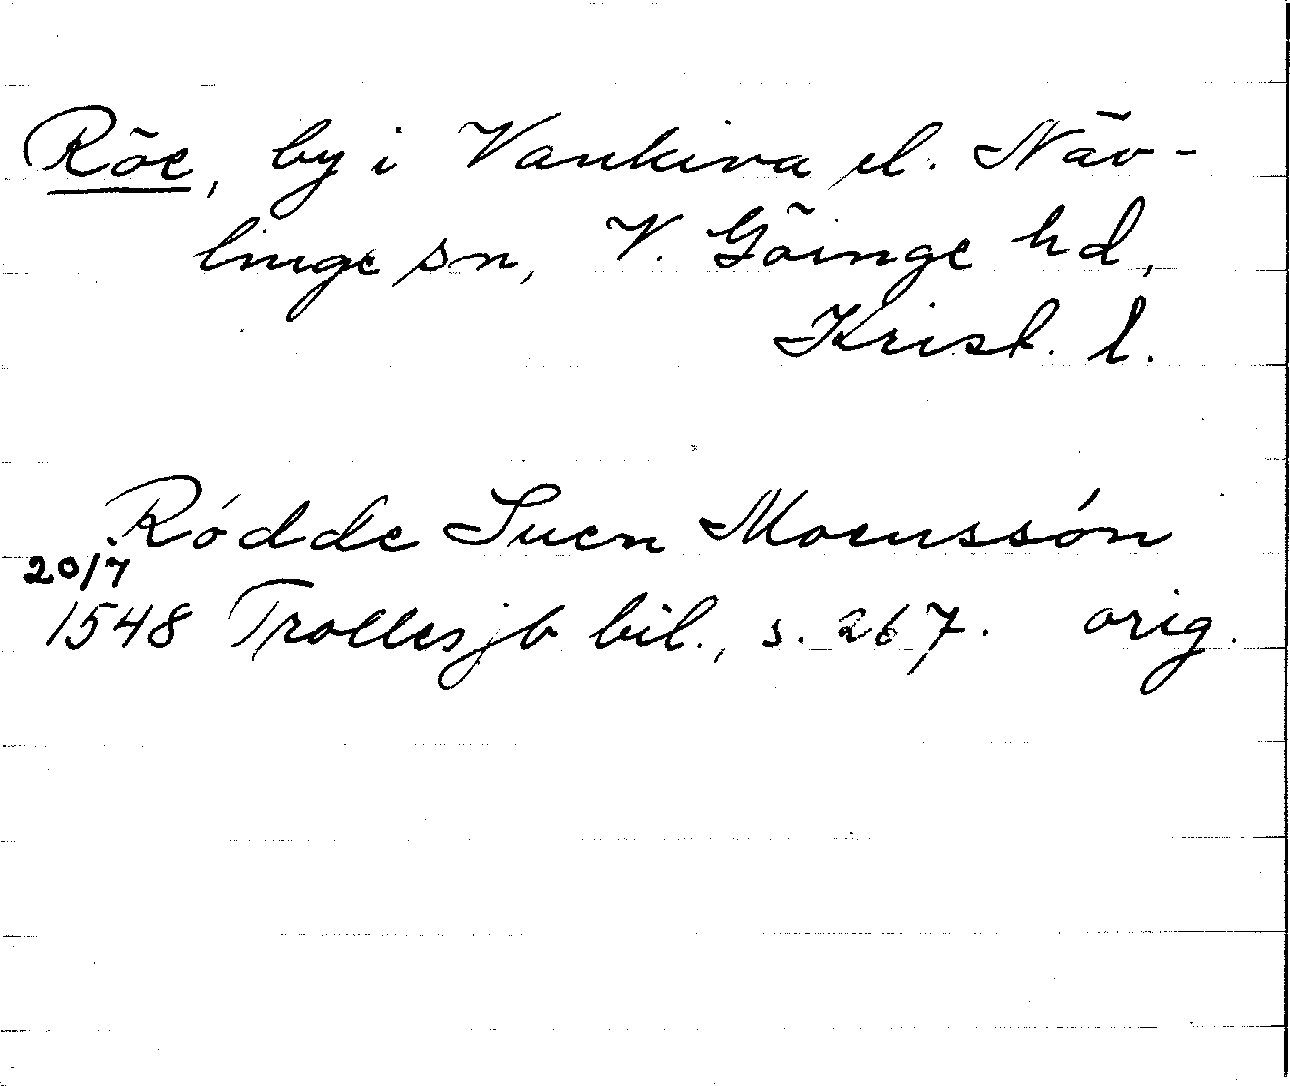 Röe, by i Vankiva el. Näv-
linge sn, V. Göinge hd,
Krist. l.
Ródde Suen Moenssón
20/7
1548 Trollesjb bil., s. 267. orig.